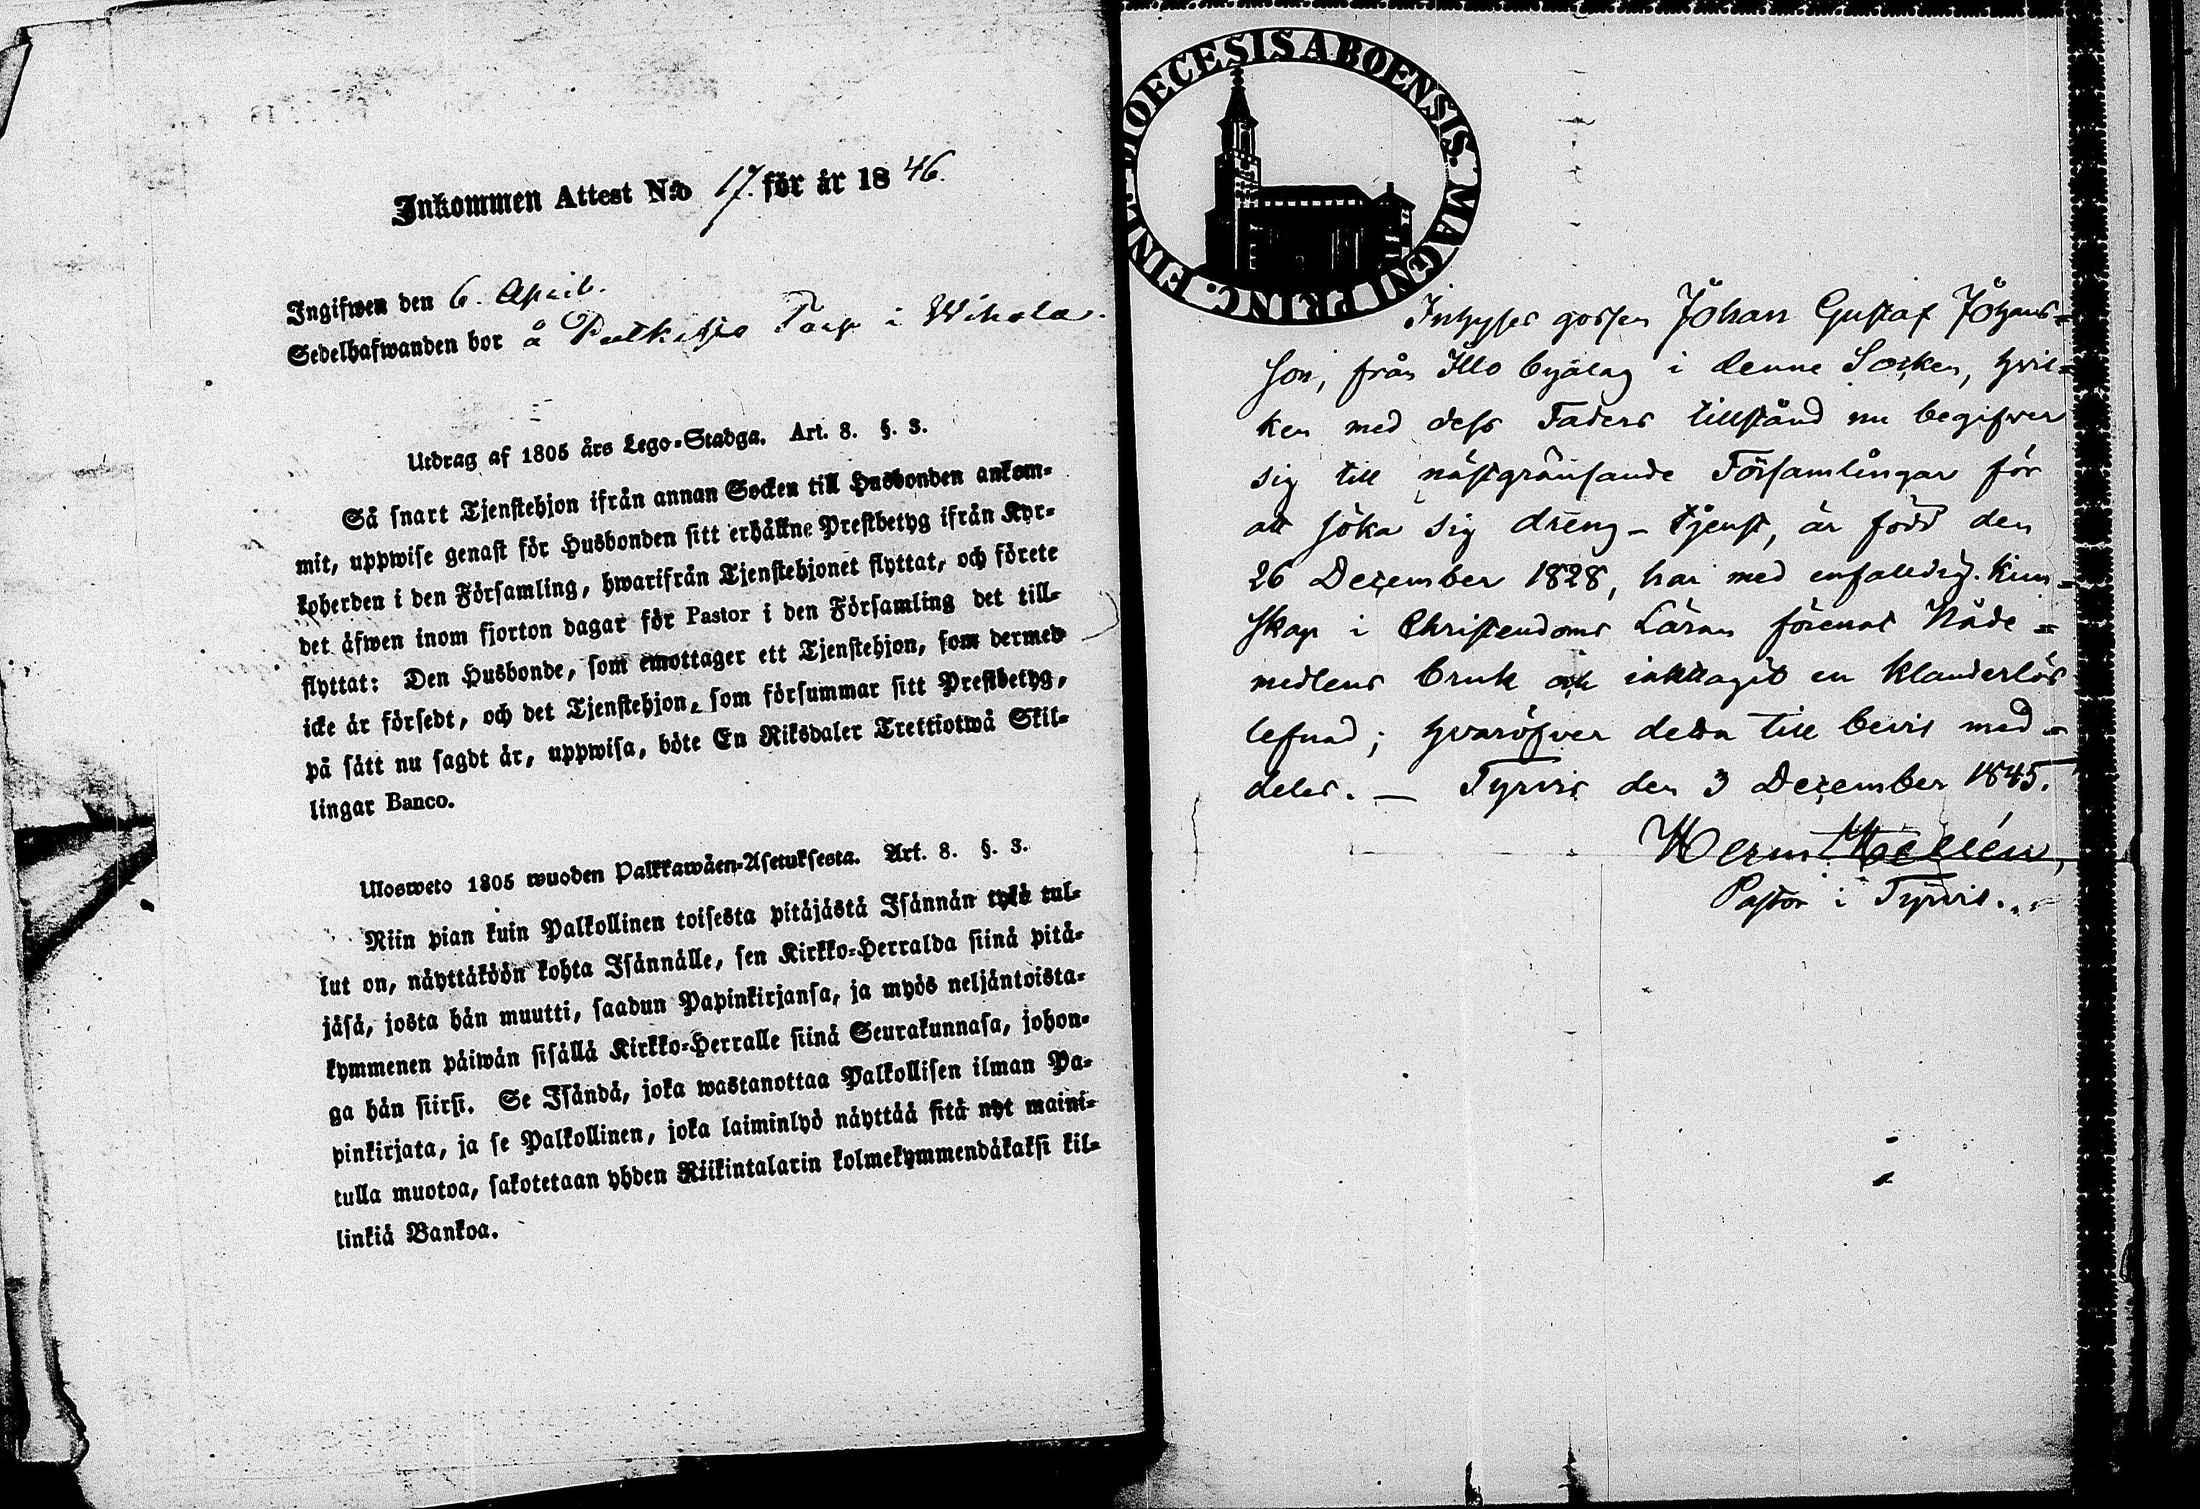 Inkommen Attest N:o 17. för år 1846.
Ingifwen den 6. April.
Sedelhafwanden bor å Torp i Wihola.
Utdrag af 1805 års Lego-Stadga. Art. 8. §. 3.
Så snart Tjenstehjon ifrån annan Socken till Husbonden ankom-
mit, uppwise genast för Husbonden sitt erhållne Prestbetyg ifrån Kyr-
koherden i den Församling, hwarifrån Tjenstehjonet flyttat, och förete
det äfwen inom fjorton dagar för Pastor i den Församling det till-
flyttat: Den Husbonde, som emottager ett Tjenstehjon, som dermed
icke är försedt, och det Tjenstehjon, som försummar sitt Prestbetyg,
på sätt nu sagdt är, uppwisa, böte En Riksdaler Trettiotwå Skil-
lingar Banco.
Ulosweto 1805 wuoden Palkkawäen-Asetuksesta. Art. 8. §. 3.
Niin pian kuin Palkollinen toisesta pitäjästä Isännän tykö tul-
lut on, näyttäköön kohta Isännälle, sen Kirkko-Herralda siinä pitä-
jäsä, josta hän muutti, saadun Papinkirjansa, ja myös neljäntoista-
kymmenen päiwän sisällä Kirkko-Herralle siinä Seurakunnasa, johon-
ga hän siirsi. Se Isändä, joka wastanottaa Palkollisen ilman Pa-
pinkirjata, ja se Palkollinen, joka laiminlyö näyttää sitä nyt maini-
tulla muotoa, sakotetaan yhden Riikintalarin kolmekymmendäkaksi kil-
linkiä Bankoa.
DIOECESIS ABOENSIS. MAGNI PRINC. FINL.
Inhyses gossen Johan Gustaf Johans=
son, från Illo byalag i denne Socken, hvil=
ken med dess Faders tillstånd nu begifver
sig till nästgränsande Församlingar för
att söka sig dreng-tjenst, är född den
26 December 1828, har med enfalldig kun=
skap i Christendoms Läran förenat Nåde=
medlens bruk och iakttagit en klanderlös
lefnad; hvaröfver detta till bevis med=
delas. — Tyrvis den 3 December 1845.
Herm. Hellén,
Pastor i Tyrvis.